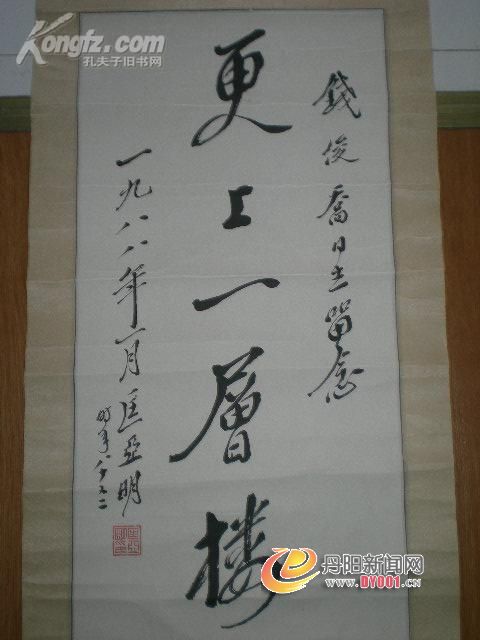 Kongfz.com
孔夫子旧书网
錢俊喬同志留念
更上一層樓
一九八八年一月匡亞明
时年八十又二
丹阳新闻网
WWW.DY001.CN